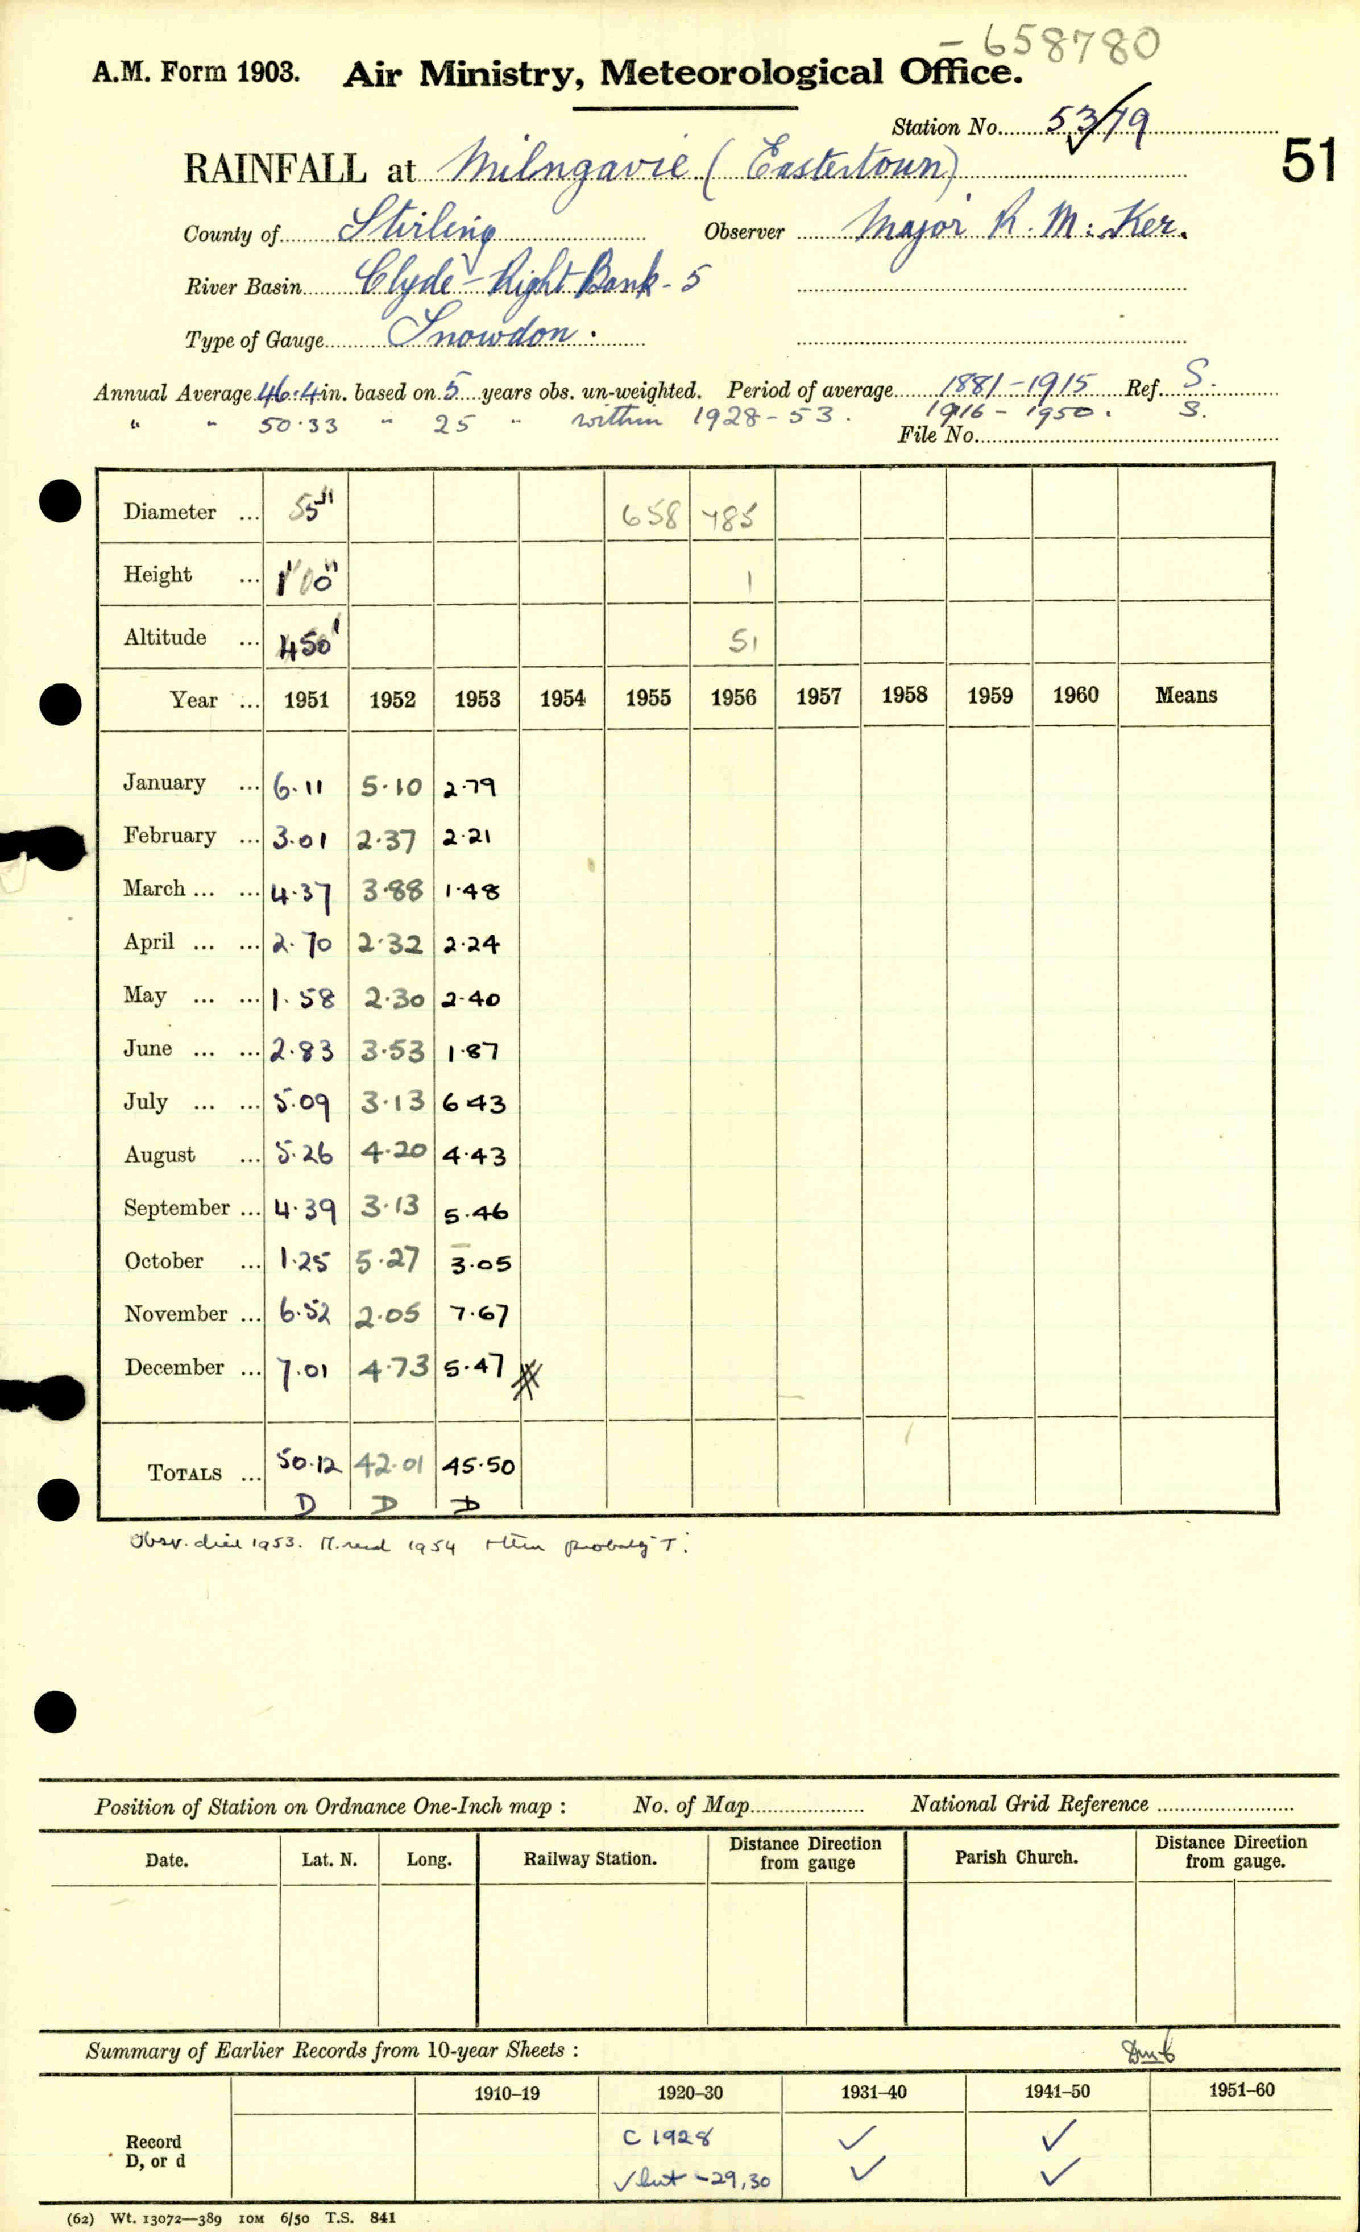 - 658780
A.M. Form 1903. Air Ministry, Meteorological Office.
Station No. 53/79
51
RAINFALL at Milngavie (Eastertown)
County of Stirling Observer Major R. M. Ker.
River Basin Clyde - Right Bank - 5
Type of Gauge Snowdon.
Annual Average 46.4 in. based on 5 years obs. un-weighted. Period of average 1881-1915 Ref. S.
" " 50.33 " 25 " within 1928-53. 1916-1950. S.
File No.
Diameter ... 5" 658 785
Height ... 1'0" 1
Altitude ... 450' 51
Year ... 1951 1952 1953 1954 1955 1956 1957 1958 1959 1960 Means
January ... 6.11 5.10 2.79
February ... 3.01 2.37 2.21
March ... ... 4.37 3.88 1.48
April ... ... 2.70 2.32 2.24
May ... ... 1.58 2.30 2.40
June ... ... 2.83 3.53 1.87
July ... ... 5.09 3.13 6.43
August ... 5.26 4.20 4.43
September ... 4.39 3.13 5.46
October ... 1.25 5.27 3.05
November ... 6.52 2.05 7.67
December ... 7.01 4.73 5.47
TOTALS ... 50.12 42.01 45.50
D D D
Obsr. died 1953. 1954 probably T.
Position of Station on Ordnance One-Inch map : No. of Map National Grid Reference
Date. Lat. N. Long. Railway Station. Distance Direction from gauge Parish Church. Distance Direction from gauge.
Summary of Earlier Records from 10-year Sheets :
1910-19 1920-30 1931-40 1941-50 1951-60
Record C 1928 ✓ ✓
D, or d ✓ but -29,30 ✓ ✓
(62) Wt. 13072—389 10M 6/50 T.S. 841